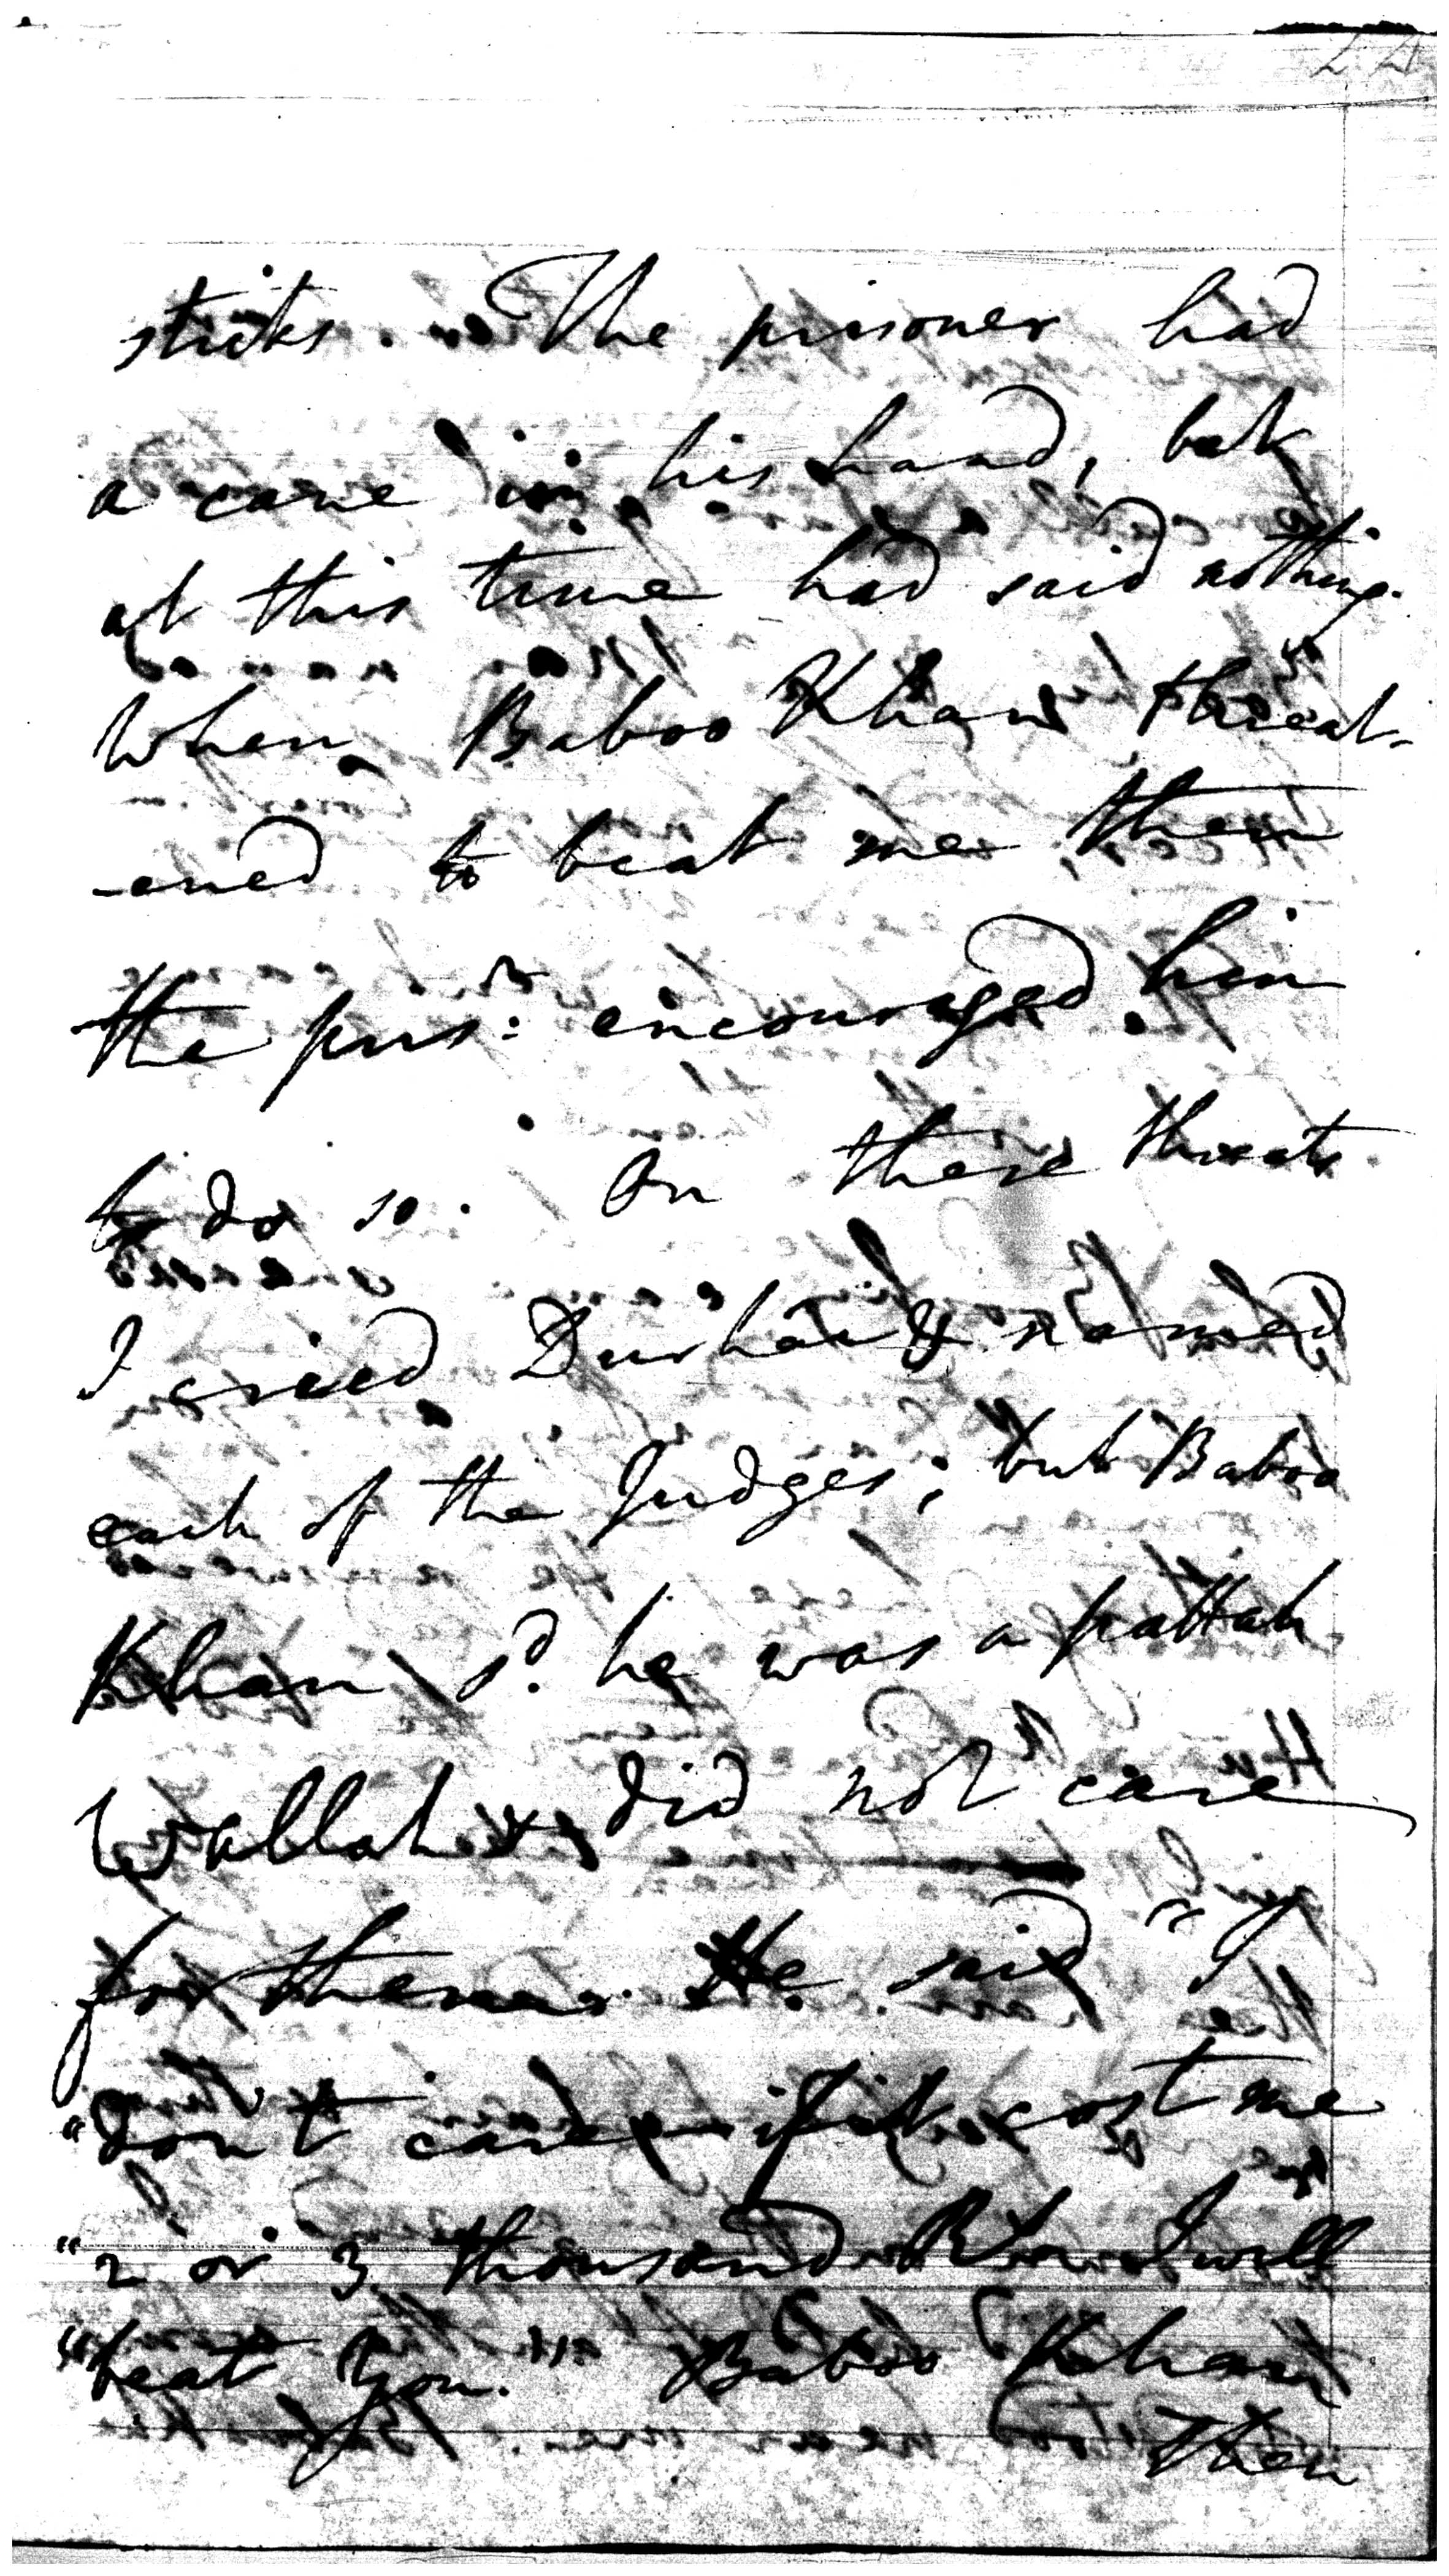 sticks. The prisoner had
a cane in his hand, but
at this time had said nothing.
When Baboo Khan threat-
-ened to beat me then
the prisr: encouraged him
to do so. On these threats
I cried Durhai & named
each of the Judges; but Baboo
Khan sd. he was a pattah
Wallah & did not care
for them. He said "I
"don't care if it cost me
"2 or 3 thousand Rs. I will
"beat you." Baboo Khan
then